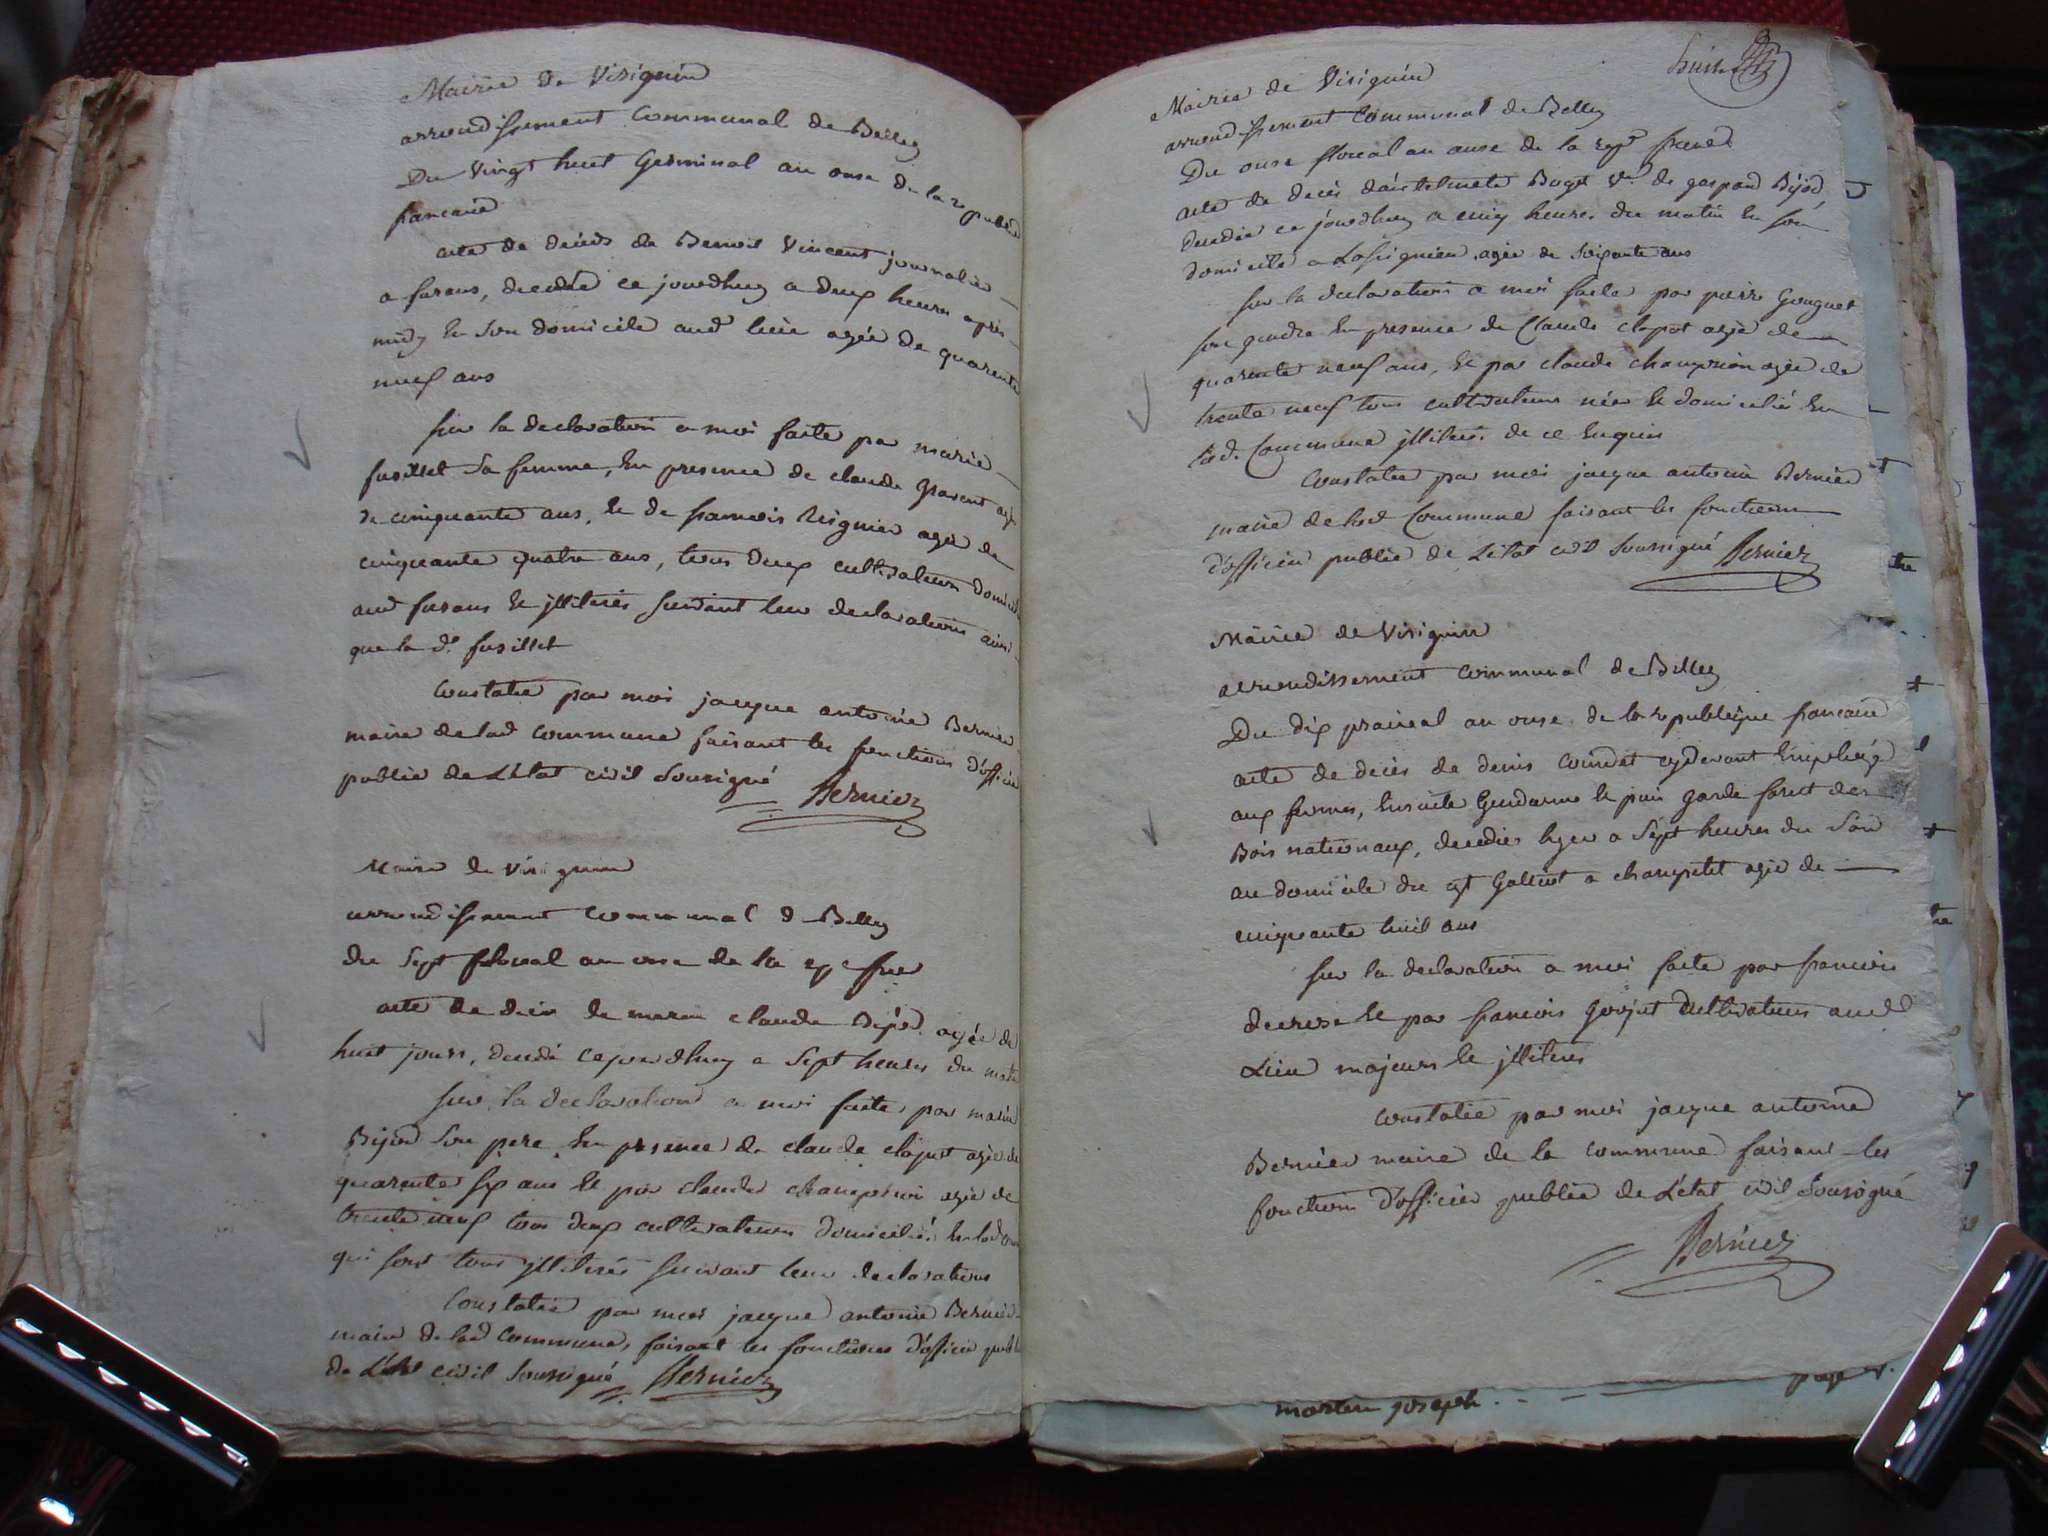 Mairie de Virignin
arrondissement Communal de Belley
Du vingt huit Germinal an onse de la republi
francaise
acte de décès de Benoit Vincent journalier
a furans, decedé ce jourdhuy a deux heures après
midy en son domicile aud lieu agée de quarente
neuf ans
sur la declaration a moi faite par marie
fusillet sa femme, en presence de claude parent agé
de cinquante ans, et de francois Reignier agée de
cinquante quatre ans, tous deux cultivateurs domicil
aud furans et jllitérés suivant leur declarations ainsi
que la de fusillet
Constatée par moi jacque antoine Bernier
maire de lad commune faisant les fonctions d'officier
public de L'état civil Soussigné Bernier
Mairie de Virignin
arrondissement communal de Belley
du sept floreal an onse de la rep fse
acte de décès de marie claude Bijod agée de
huit jours, decedé cejourdhuy a sept heures du matin
sur la declaration a moi faite par marin
Bijod son pere en presence de claude clapot agée de
quarente six ans et par claude champion agée de
trente neuf tous deux cultivateurs domiciliés en lad
qui sont tous jllitérés suivant leur declarations
Constatée par moi jacque antoine Bernier
maire de lad commune, faisant les fonctions d'officier publi
de L'état civil soussigné Bernier
Mairie de Virignin
arrondissement Communal de Belley
Du onse floreal an onse de la rep francse
acte de décès Buget ve de gaspard Bijod
decedée ce jourdhuy a cinq heures du matin en son
domicile a agée de soixante ans
sur la declaration a moi faite par pierre Gouguet
son gendre en presence de Claude clapot agée de
quarente neuf ans, et par claude champion agée de
trente neuf tous cultivateurs nées et domiciliés en
lad. Commune jllitérés de ce enquis
Constatée par moi jacque antoine Bernier
maire de lad Commune faisant les fonctions
d'officier public de L'état civil soussigné Bernier
Mairie de Virignin
arrondissement communal de Belley
Du dix prairial an onse de la republique francaise
acte de décès de denis coundet cydevant Employé
aux fermes, ensuite Gendarme et puis garde forest des
Bois nationaux, decedée hyer a sept heures du Soir
au domicile du cyt Galliot a champtel agée de
cinquante huit ans
sur la declaration a moi faite par francois
decrose et par francois goujet cultivateurs aud
Lieu majeurs et jllitérés
Constatée par moi jacque antoine
Bernier maire de la commune faisant les
fonctions d'officier public de L'état civil Soussigné
Bernier
martin joseph
page